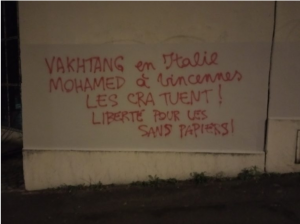 VAKHTANG en Italie
MOHAMED à Vincennes
LES CRA TUENT!
LIBERTÉ POUR LES
SANS PAPIERS!